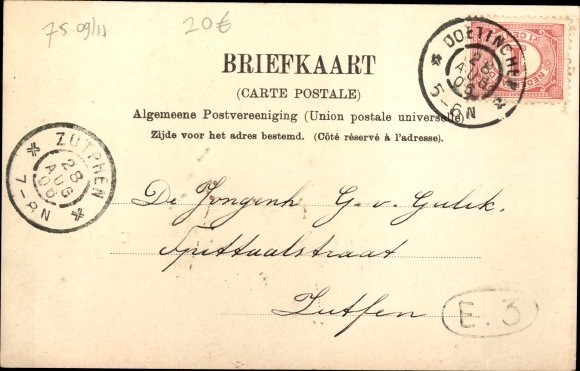 75 09/11 20€
DOETINCHEM
28
AUG
06
5-6N
BRIEFKAART
(CARTE POSTALE)
Algemeene Postvereeniging (Union postale universelle)
Zijde voor het adres bestemd. (Côté réservé à l'adresse).
ZUTPHEN
28
AUG
06
7-8N
De Jongenh G. v. Gulik.
Spittaalstraat
Zutfen
E. 3